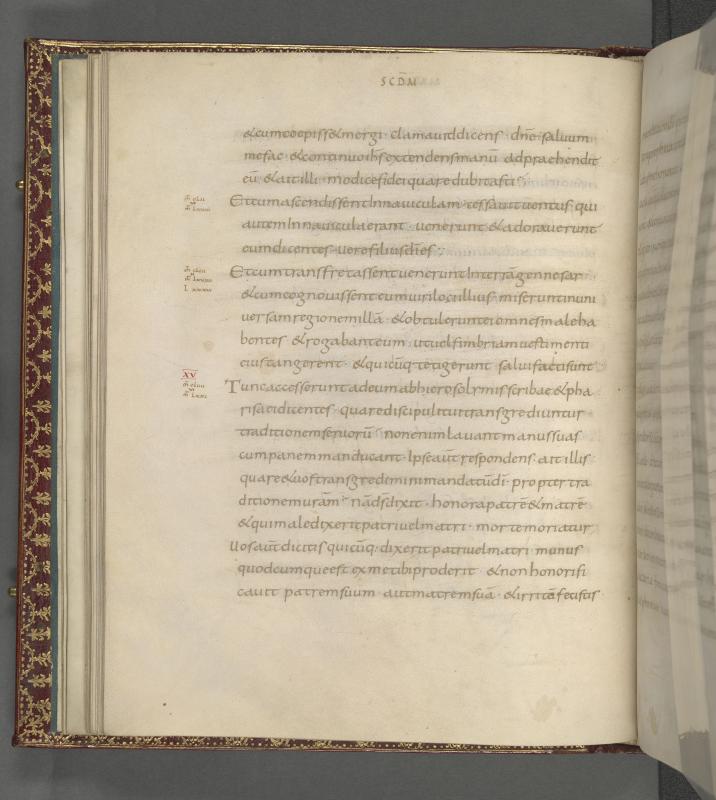 SCDM
&cumcoepiss&mergi · clamauitdicens · dn̄e · saluum
mefac · &continuoih̄sextendensmanū · adpraehendit
eū · &aitilli · modicefideiquaredubitasti ·
Etcumascendissent Innauiculam · cessauituentus · qui
autemInnauiculaerant · uenerunt&adorauerunt
eumdicentes · uerefiliusdīes ·
Etcumtransfretassentuenerunt Interrāgennesar
&cumcognouissenteumuirilociillius · miseruntinuni
uersamregionemillā · &obtulerunteiomnesmaleha
bentes · &rogabanteum · utuelfimbriamuestimenti
eiustangerent · &quicūq · tetigerunt · saluifactisunt
XV
Tuncaccesseruntadeumabhierosolymisscribae&pha
risaeidicentes · quarediscipulituitransgrediuntur
traditionemseniorū · nonenimlauantmanussuas
cumpanemmanducant · Ipseaūtrespondens · aitillis
quare&uostransgrediminimandatūdī · propter tra
ditionemuram̄ · nādsdixit · honorapatrē&matrē
&quimaledixeritpatriuelmatri · mortemoriatur
Uosaūtdicitis quicūq · dixeritpatriuelmatri · munus
quodcumqueest exmetibiproderit · &nonhonorifi
cauit patremsuum · autmatremsuā · &irritāfecistis